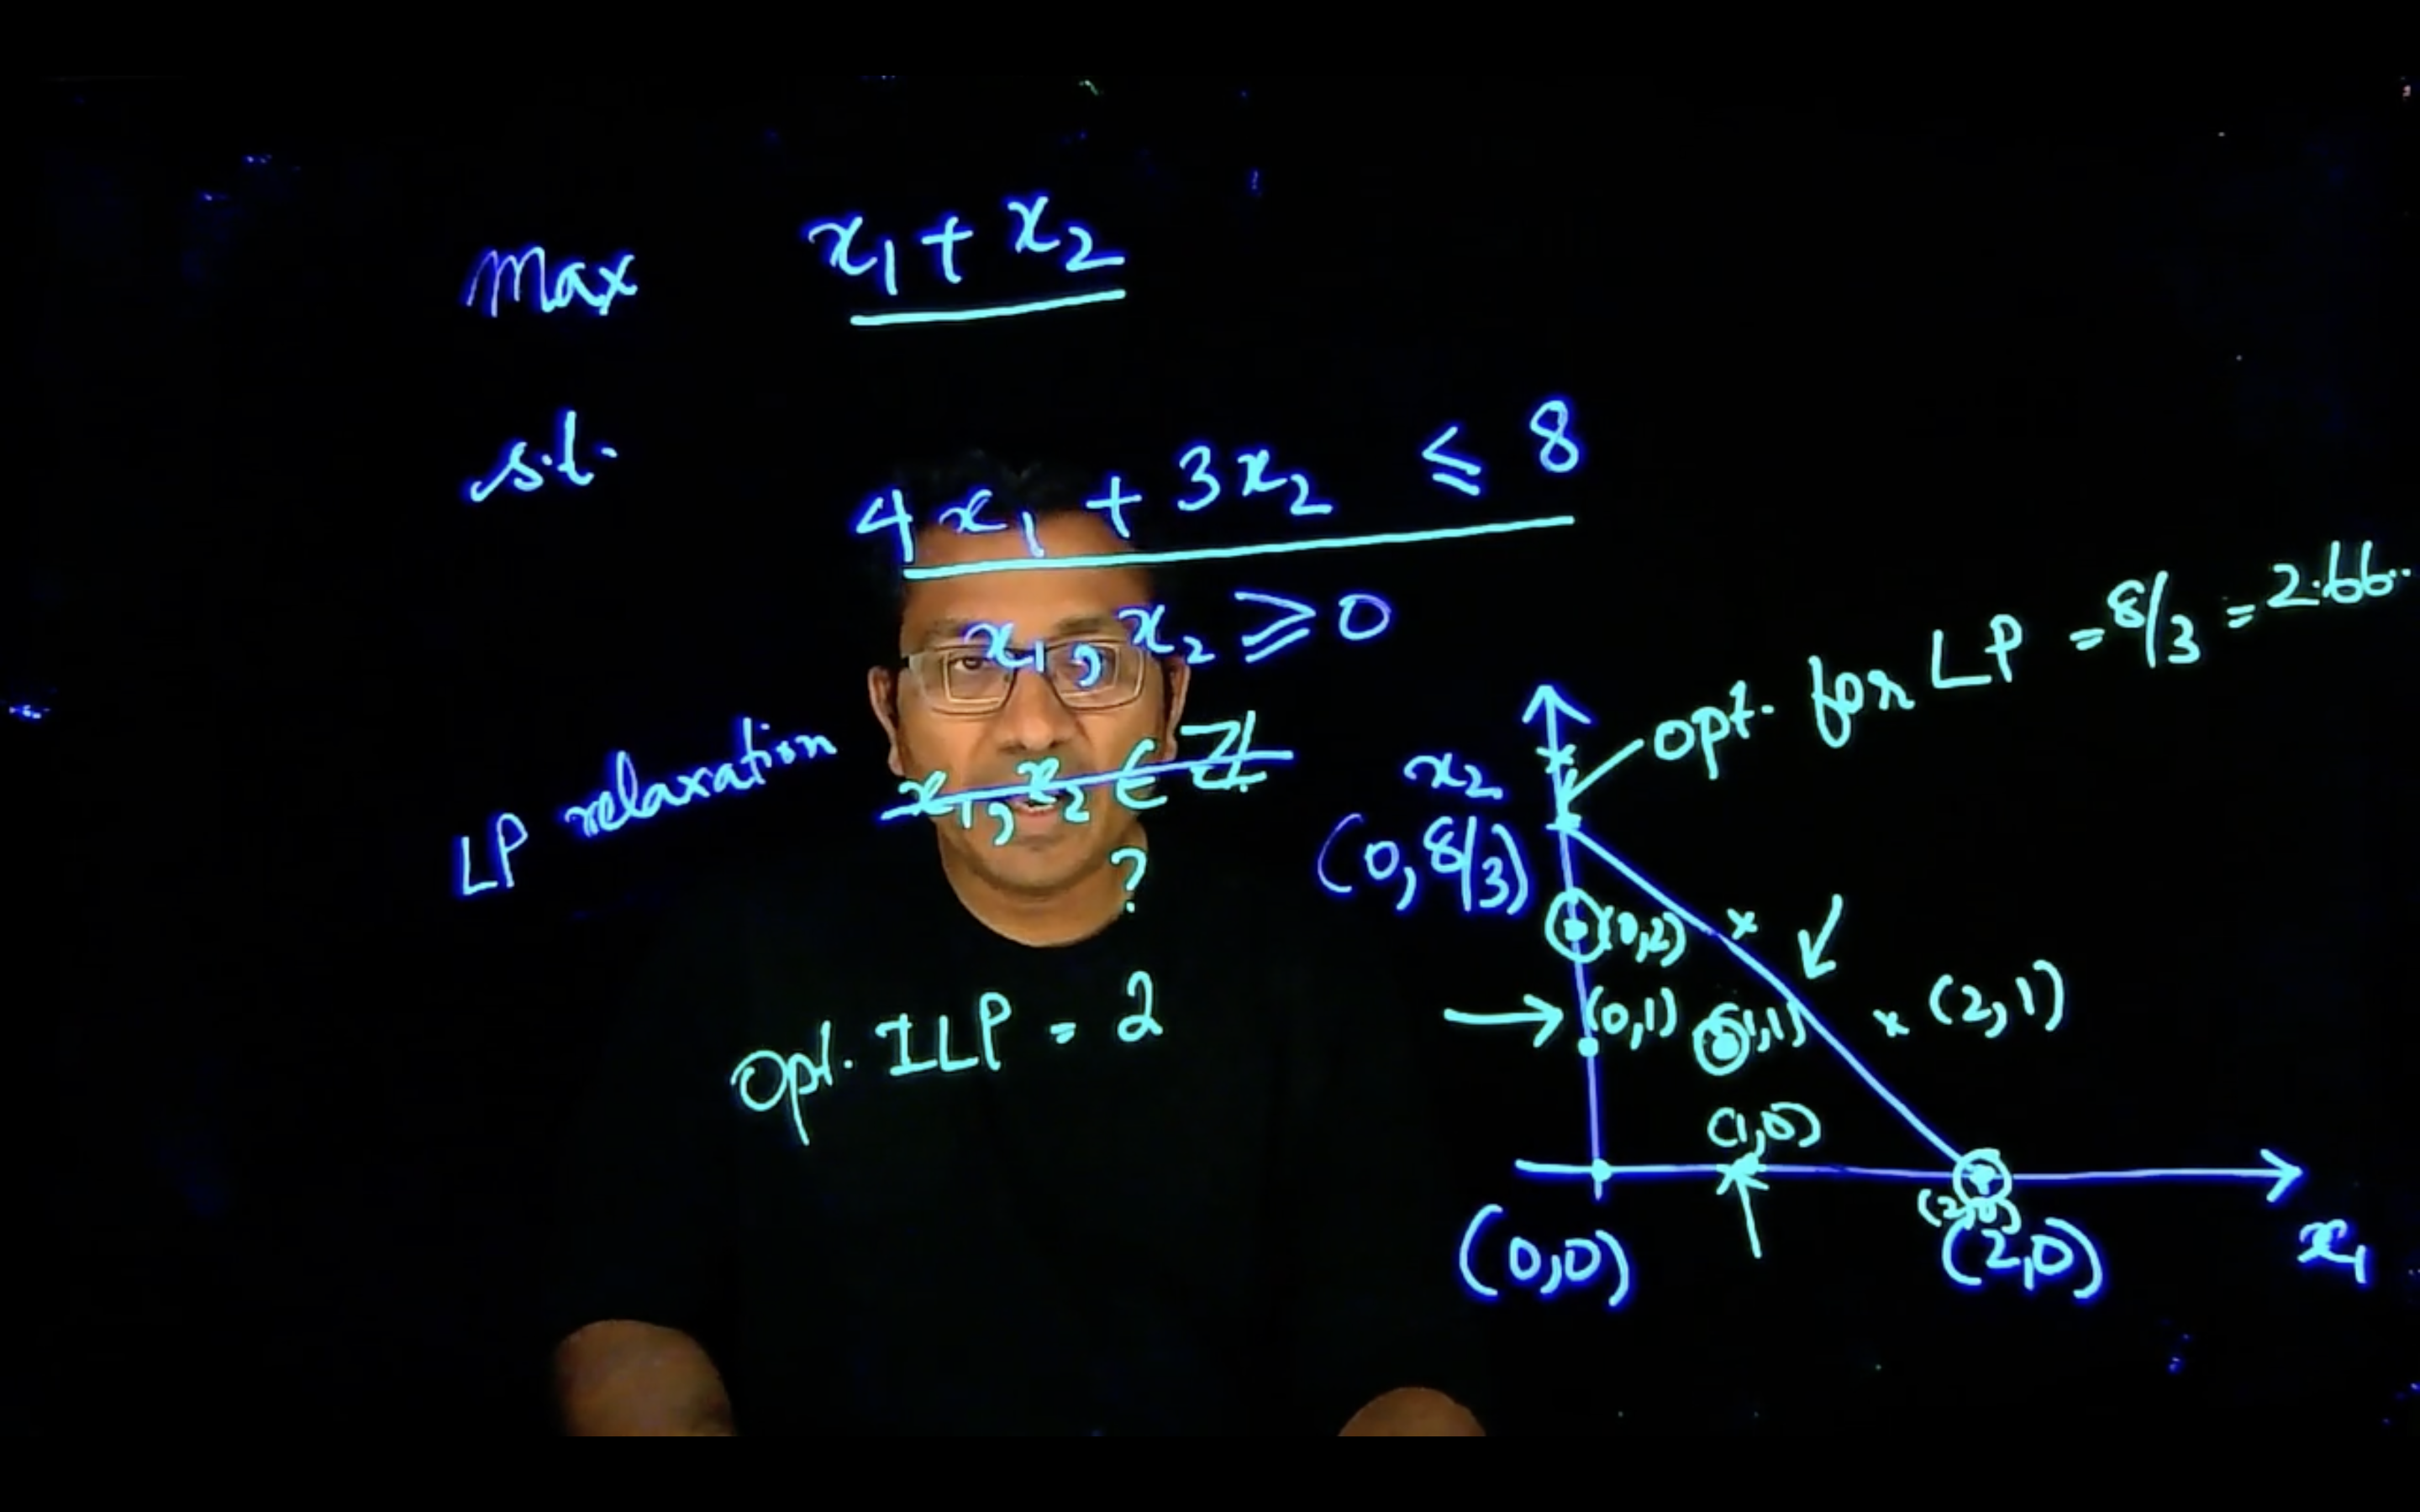 Max x₁ + x₂
s.t.
4x₁ + 3x₂ ≤ 8
x₁, x₂ ≥ 0
LP relaxation x₁, x₂ ∈ ℤ
?
Opt. ILP = 2
opt. for LP = 8/3 = 2.66..
x₂
(0, 8/3)
(0,2)
(0,1) (1,1) (2,1)
(1,0)
(2,0)
(0,0) (2,0) x₁